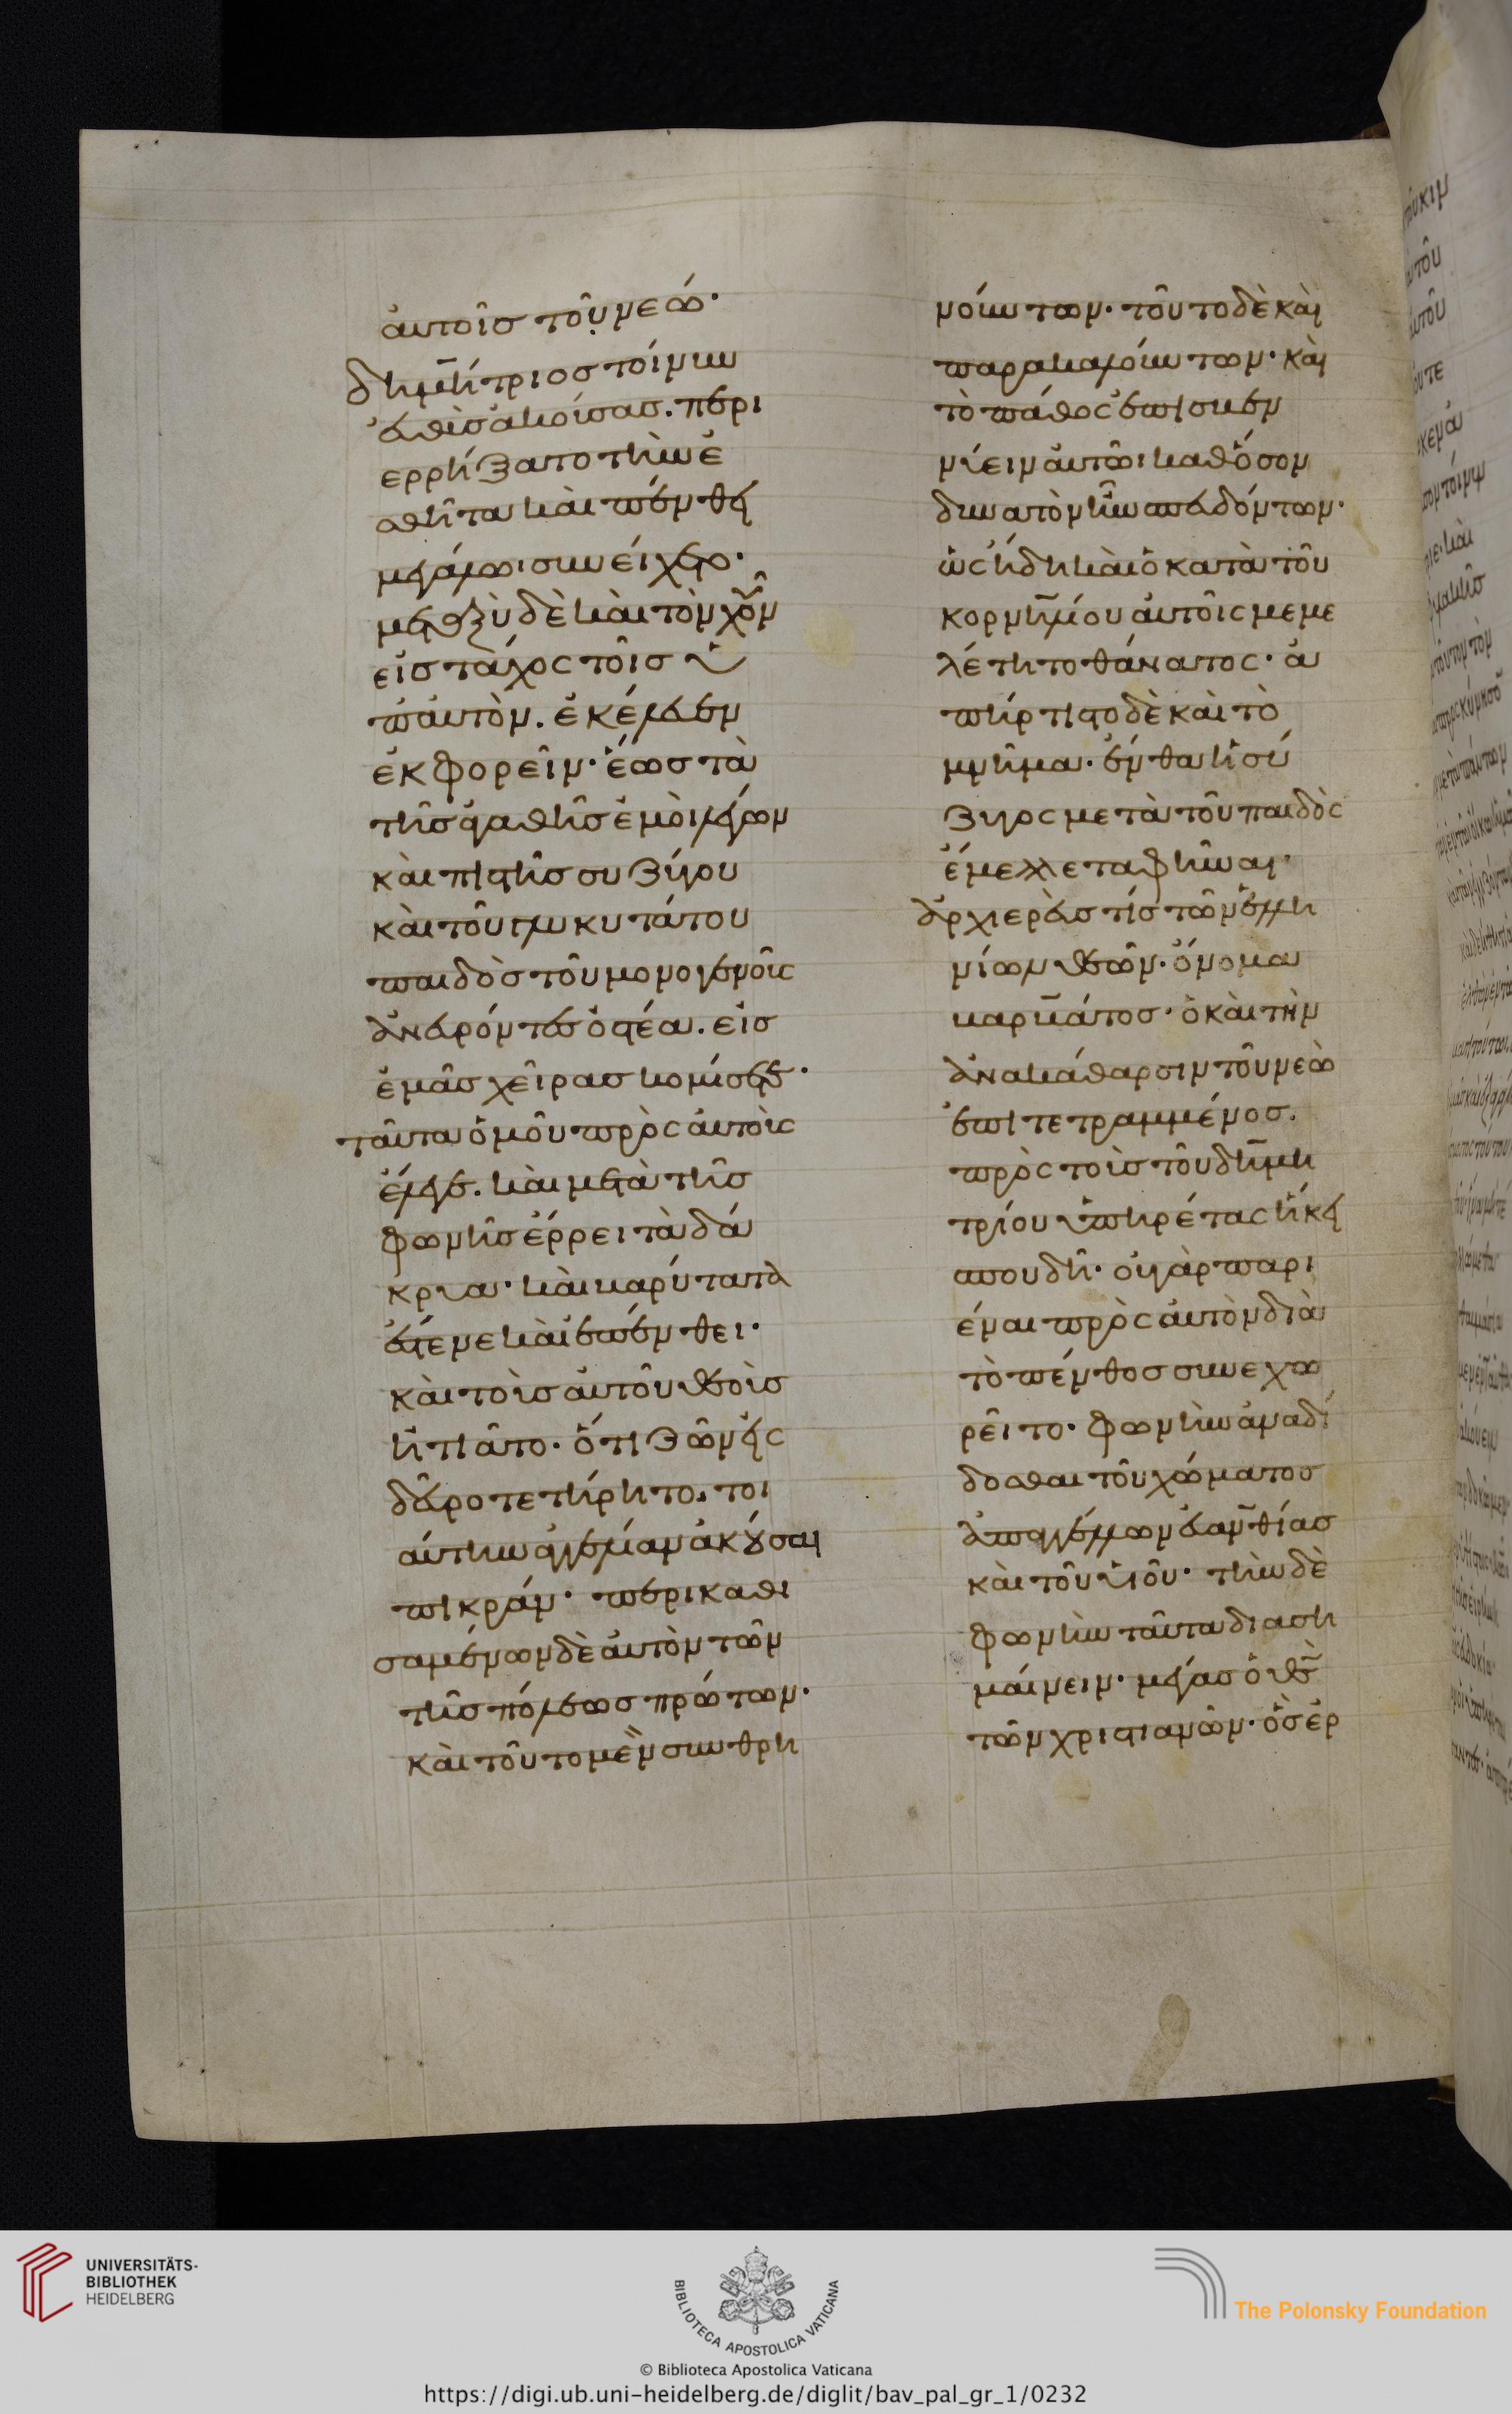 αυτοῖσ τοῦ νεώ·
δημήτριοσ τοίνυν
εὐθὺσ ἀκούσασ. περι
ερρήξατο τὴν ἐ
σθῆτα καὶ πένθει
μεγάλωι συνείχετο·
μεταξὺ δὲ καὶ τὸν χοῦν
εἰσ τάχος τοῖσ ὑ
π' αὐτὸν. ἐκέλευεν
ἐκφορεῖν· ἕως τὰ
τῆσ ἀγαθῆσ ἐμοὶ λέγων
καὶ πιστῆσ συζύγου
καὶ τοῦ γλυκυτάτου
παιδὸσ τοῦ μονογενοῦς
ἀνευρόντεσ ὀστέα. εἰσ
ἐμᾶσ χεῖρασ κομίσητε·
ταῦτα ὁμοῦ πρὸς αὐτοὺς
ἔλεγε. καὶ μετὰ τῆσ
φωνῆσ ἔρρει τὰ δά
κρυα· καὶ βαρύτατα
ἔστενε καὶ ἐπένθει·
καὶ τοῖσ αὐτοῦ θεοῖσ
ἠτιᾶτο· ὅτι ζῶν εἰς
δεῦρο τετήρητο. τοι
αύτην ἀγγελίαν ἀκοῦσαι
πικράν· περικαθι
σαμένων δὲ αὐτὸν τῶν
τῆσ πόλεωσ πρώτων·
καὶ τοῦτο μὲν συνθρη
νούντων· τοῦτο δὲ καὶ
παρακαλούντων· καὶ
τὸ πάθος ἐπισκεμ
νύειν αὐτῶι καθόσον
δυνατὸν ἦν σπευδόντων·
ὡς ἤδη καὶ ὁ κατὰ τοῦ
κορνηλίου αὐτοῖς μεμε
λέτητο θάνατος· εὐ
τρέπιστο δὲ καὶ τὸ
μνῆμα· ἔνθα ἡ σύ
ζυγος μετὰ τοῦ παιδὸς
ἔμελλε ταφῆναι·
ἀρχιερεύσ τίσ τῶν ἑλλη
νίων θεῶν· ὄνομα
βαρβάτοσ· ὁ καὶ τὴν
ἀνακάθαρσιν τοῦ νεὼ
ἐπιτετραμμένοσ.
πρὸς τοὺσ τοῦ δημη
τρίου ὑπηρέτας ἧκε
σπουδῆ· οὐ γὰρ παρι
έναι πρὸς αὐτὸν διὰ
τὸ πένθοσ συνεχω
ρεῖτο· φωνὴν ἀναδί
δοσθαι τοῦ χώματοσ
ἀπαγγέλλων εὐανθίασ
καὶ τοῦ υἱοῦ· τὴν δὲ
φωνὴν ταῦτα διαση
μαίνειν· μέγασ ὁ θεὸς
τῶν χριστιανῶν· ὃσ ἐρ
UNIVERSITÄTS-
BIBLIOTHEK
HEIDELBERG
BIBLIOTECA APOSTOLICA VATICANA
The Polonsky Foundation
© Biblioteca Apostolica Vaticana
https://digi.ub.uni-heidelberg.de/diglit/bav_pal_gr_1/0232